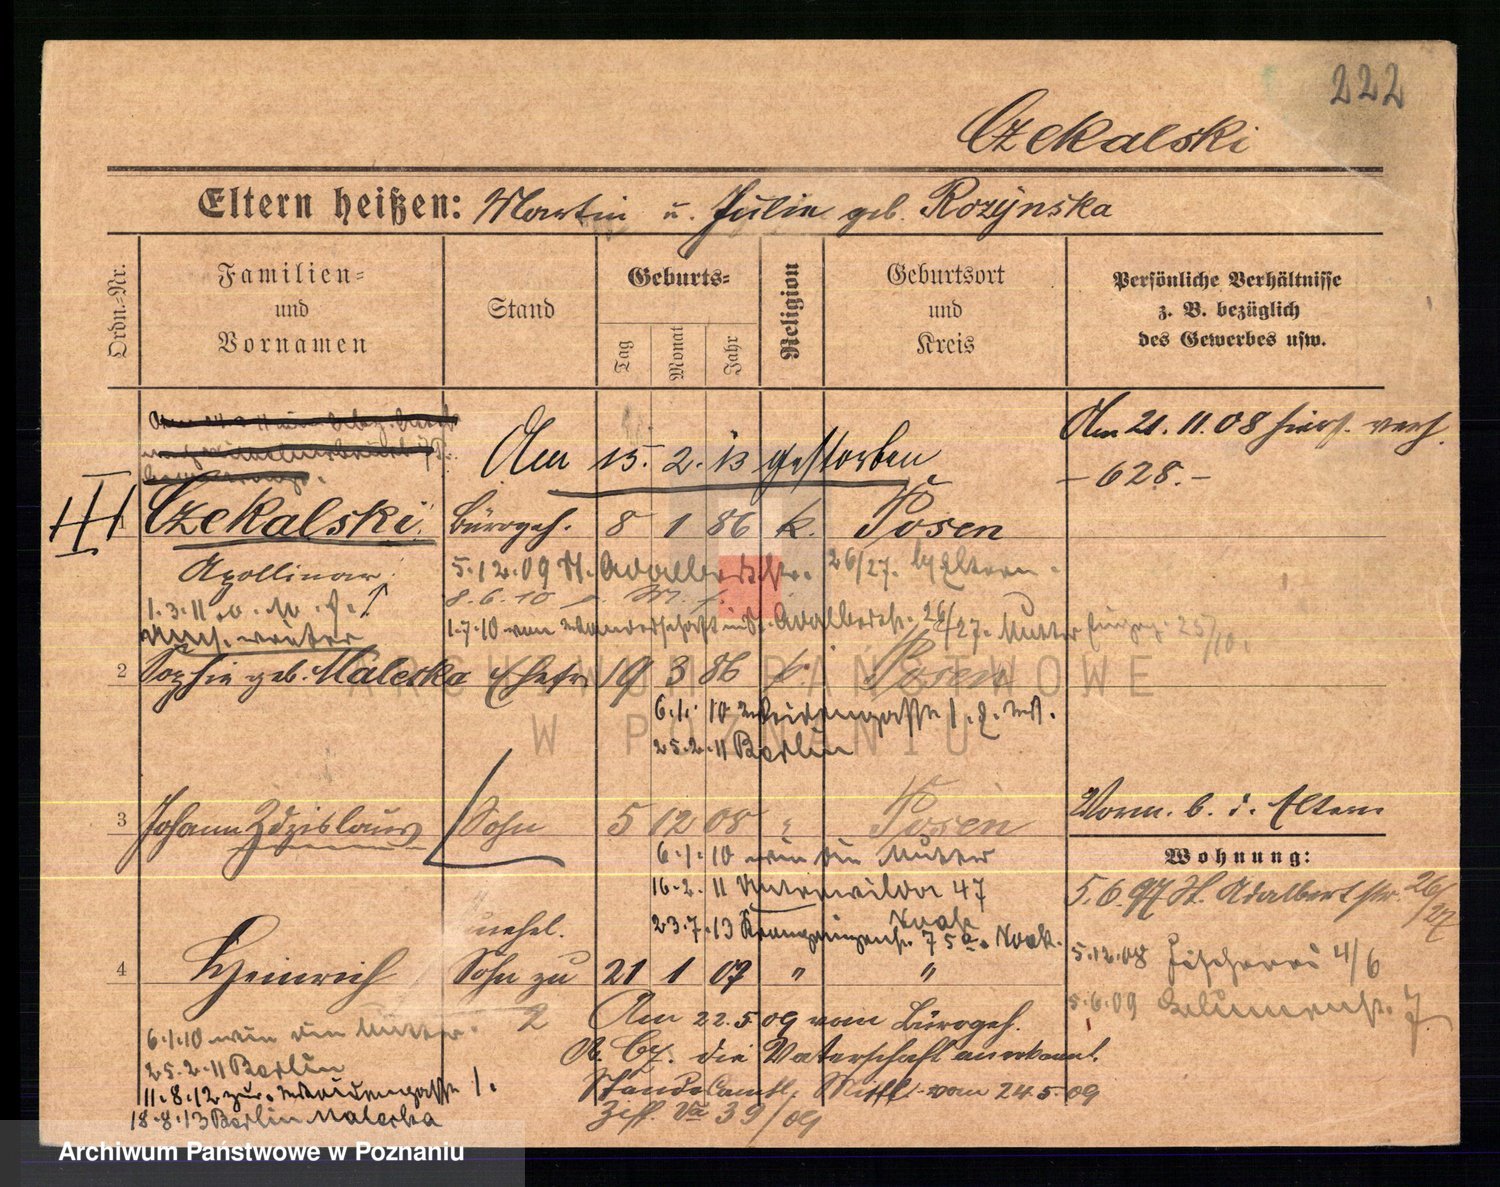 222
Czekalski
Eltern heißen: Martin u. Julie geb. Rozynska
Ordn.-Nr.
Familien- und Vornamen
Stand
Geburts-
Tag
Monat
Jahr
Religion
Geburtsort und Kreis
Persönliche Verhältnisse z. B. bezüglich des Gewerbes usw.
Am 15. 2. 13 gestorben
Am 21. 11. 08 hies. verh.
- 628. -
III
Czekalski Bürogeh. 8 1 86 k. Posen
Apollinar
5.12.09 St. Adalbertstr. 26/27. b/Eltern.
1.3.11
8.6.10
1.7.10 von Wanderschaft Adalbertstr. 26/27. Mutter
weiter
2 Sophie geb. Malecka Ehefr 19 3 86 k. Posen
6.1. 10 Weidengasse 1
25.2.11 Berlin
3 Johann Zdzislaus Sohn 5 12 08 Posen
Vorm. b. d. Eltern
6.1.10 wie die Mutter
Wohnung:
16.2.11 Unterwilda 47
5.6.97 St. Adalbertstr. 26/27
23.7.13 75a. Noak.
unehel.
5.12.08 Fischerei 4/6
4 Heinrich Sohn zu 2 21 1 07 " "
5.6.09 Blumenstr. 7
Am 22.5.09 vom Bürogeh.
A. Cz. die Vaterschaft anerkannt.
6.1.10 wie die Mutter.
25.2.11 Berlin
Standesamtl. Mittl. vom 24.5.09
11.8.12 zur. Weidengasse 1.
Ziff. Va 39/09
18.8.13 Berlin Malecka
ARCHIWUM PAŃSTWOWE
W POZNANIU
Archiwum Państwowe w Poznaniu